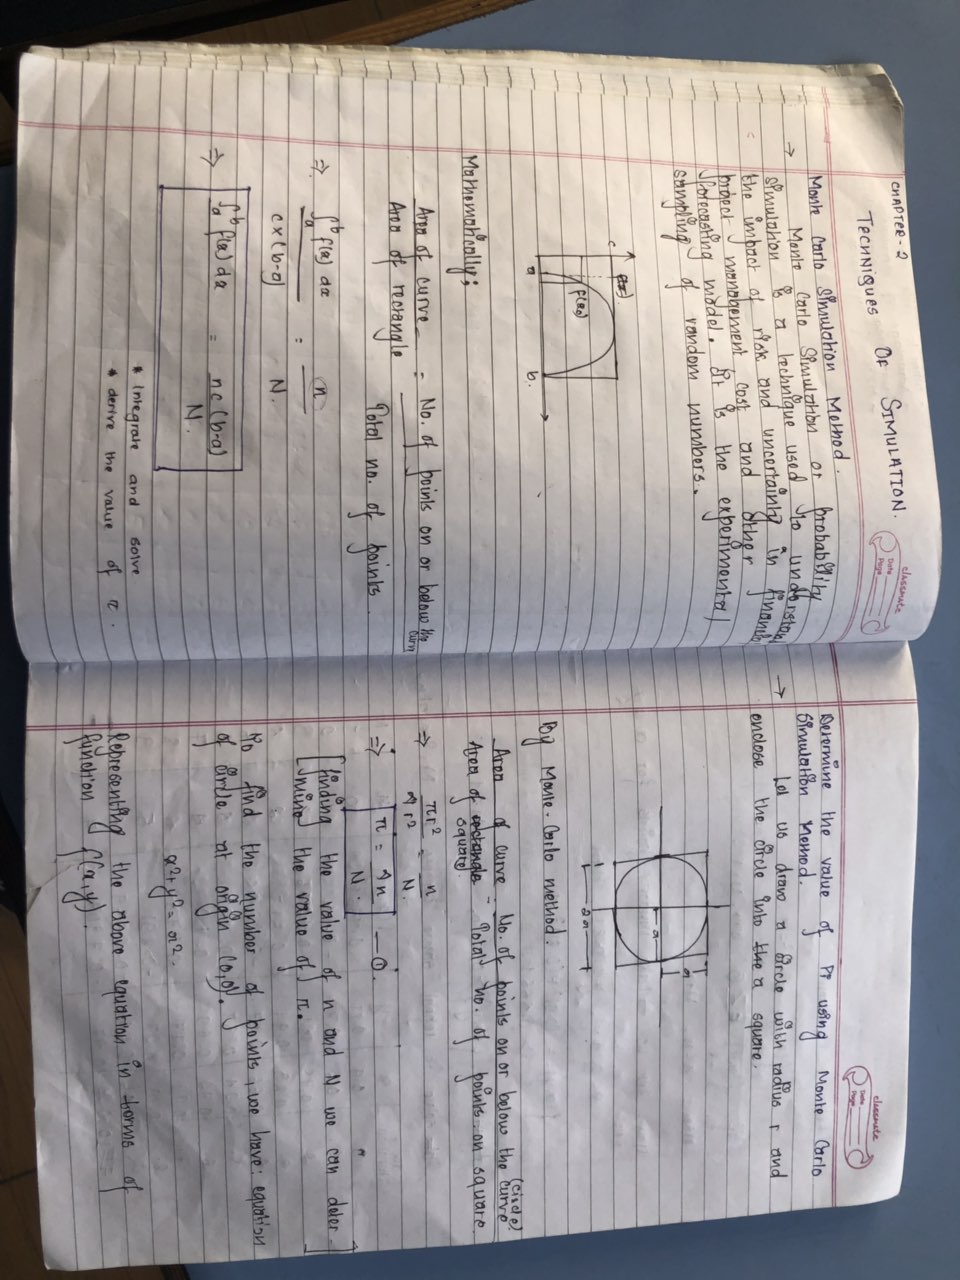 CHAPTER-2
classmate
Date
Page
TECHNIQUES OF SIMULATION.
Monte Carlo Simulation Method.
→ Monte Carlo Simulation or probability
simulation is a technique used to understand
the impact of risk and uncertainty in financial
project management cost and other
forecasting model. It is the experimental
sampling of random numbers.
c
f(x)
a
b.
Mathematically;
Area of curve = No. of points on or below the curve
Area of rectangle Total no. of points.
⇒ ∫ₐᵇ f(x) dx = n
c×(b-a) N.
⇒ ∫ₐᵇ f(x) dx = nc(b-a)
N.
* Integrate and solve
* derive the value of π.
classmate
Date
Page
Determine the value of Pi using Monte Carlo
Simulation Method.
→ Let us draw a circle with radius r and
enclose the circle into the a square.
r
2r
By Monte-Carlo method.
Area of curve = No. of points on or below the curve (circle)
Area of rectangle square Total no. of points on square.
⇒ πr² = n
4r² N.
⇒ π = 4n — ①.
N.
[finding the value of n and N we can deter-
mine the value of π.]
To find the number of points, we have; equation
of circle at origin (0,0).
x²+y²=r².
Representing the above equation in terms of
function f(x,y).